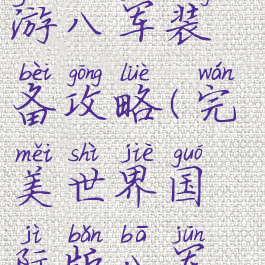 游八军装
bèi gōng lüè wán
备攻略(完
měi shì jiè guó
美世界国
jì bǎn bā jūn
际版八军